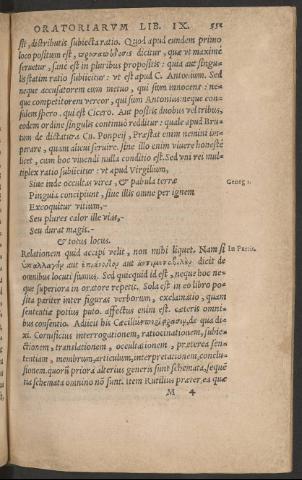 ORATORIARVM LIB. IX. 551
sit, distributis subiecta ratio. Quod apud eundem primo
loco positum est, dicitur, quæ vt maximè
seruetur, sanè est in pluribus propositis: quia aut singu-
lis statim ratio subiicitur: vt est apud C. Antonium. Sed
neque accusatorem eum metuo, qui sum innocens: ne-
que competitorem vereor, qui sum Antonius: neque con-
sulem spero, qui est Cicero. Aut positis duobus vel tribus,
eodem ordine singulis continuò redditur: quale apud Bru-
tum de dictatura Cn. Pompeij, Præstat enim nemini im-
perare, quàm alicui seruire. sine illo enim viuere honestè
licet, cum hoc viuendi nulla conditio est. Sed vni res mul-
tiplex ratio subiicitur: vt apud Virgilium,
Siue inde occultas vires, & pabula terræ Georg. 1.
Pinguia concipiunt, siue illis omne per ignem
Excoquitur vitium,-
Seu plures calor ille vias,-
Seu durat magis.-
& totus locus.
Relationem quid accipi velit, non mihi liquet. Nam si
aut aut dicit de
omnibus locuti sumus. Sed quicquid id est, neque hoc ne-
que superiora in oratore repetit. Sola est in eo libro po-
sita pariter inter figuras verborum, exclamatio, quam
sententiæ potius puto. affectus enim est. cæteris omni-
bus consentio. Adiicit his Cæcilius de qua di-
xi. Cornificius interrogationem, ratiocinationem, subie-
ctionem, translationem, occultationem, præterea sen-
tentiam, membrum, articulum, interpretationem, conclu-
sionem. quorũ priora alterius generis sunt schemata, sequẽ-
tia schemata omnino nõ sunt. Item Rutilius præter ea quæ
M 4